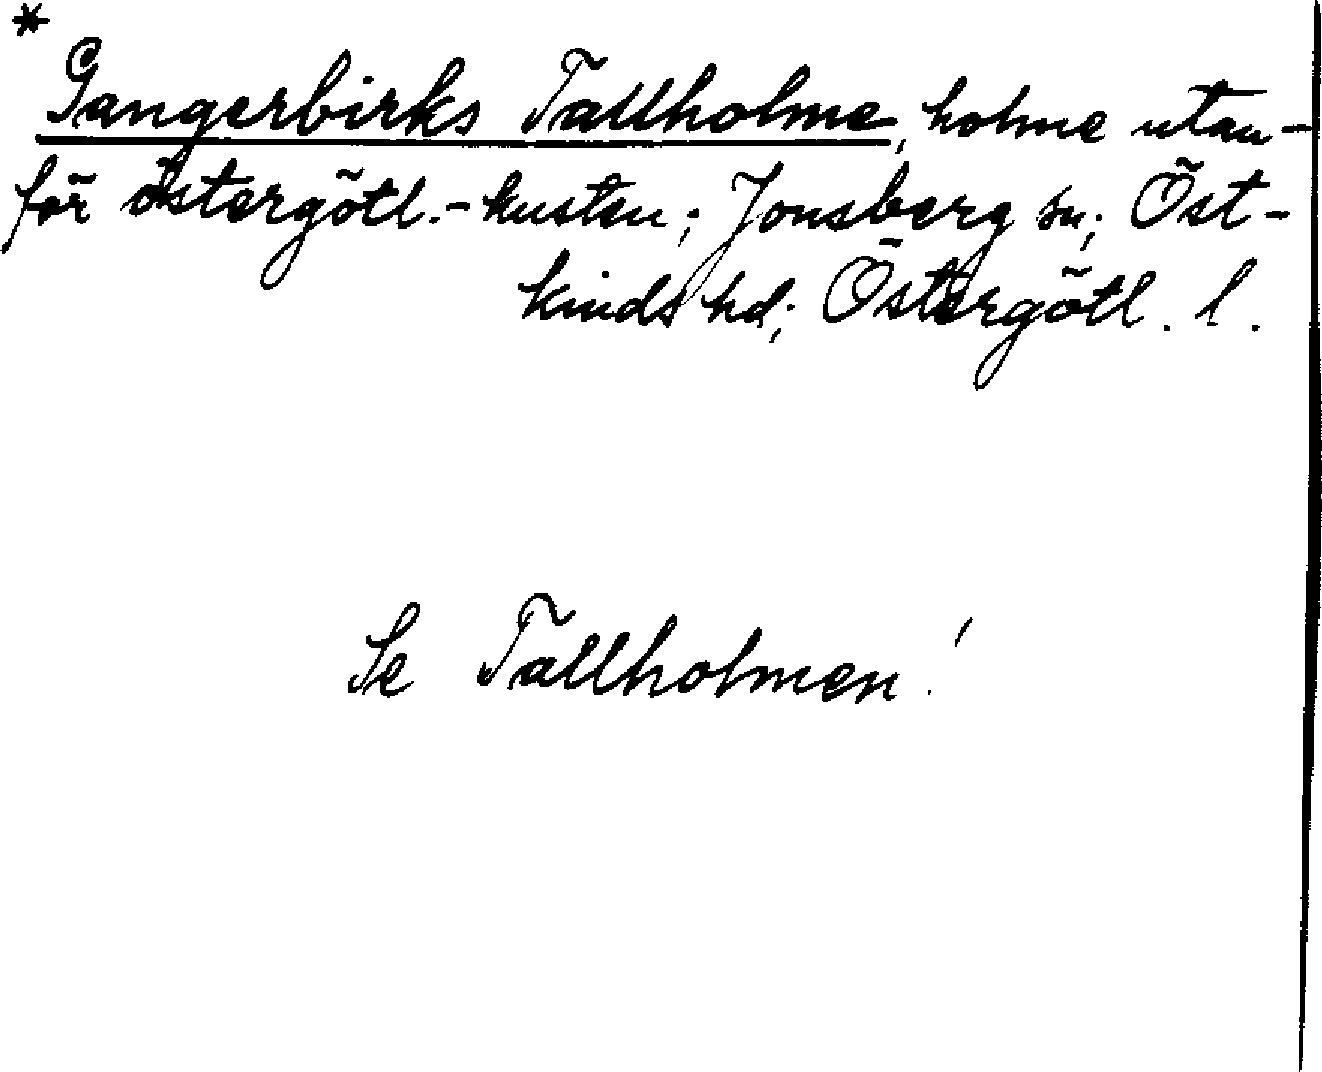 *
Gangerbirks Tallholme, holme utan-
för östergötl.-kusten; Jonsberg sn; Öst-
kinds hd; Östergötl. l.
Se Tallholmen!